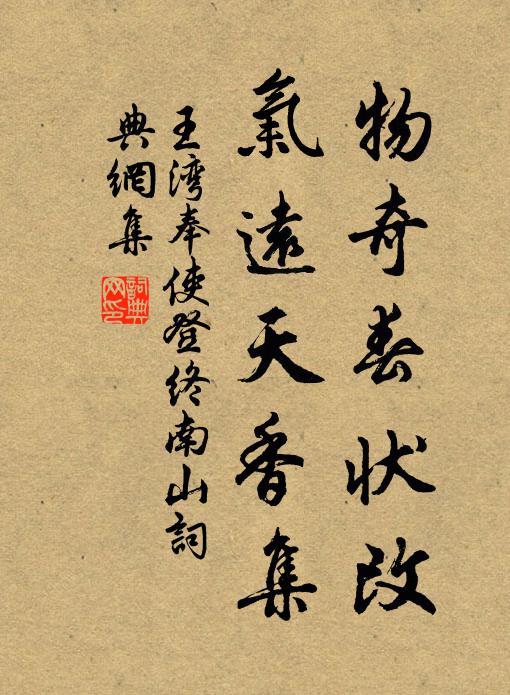 物奇春狀改
氣遠天香集
王湾奉使登终南山詞
典網集
詞典
网印